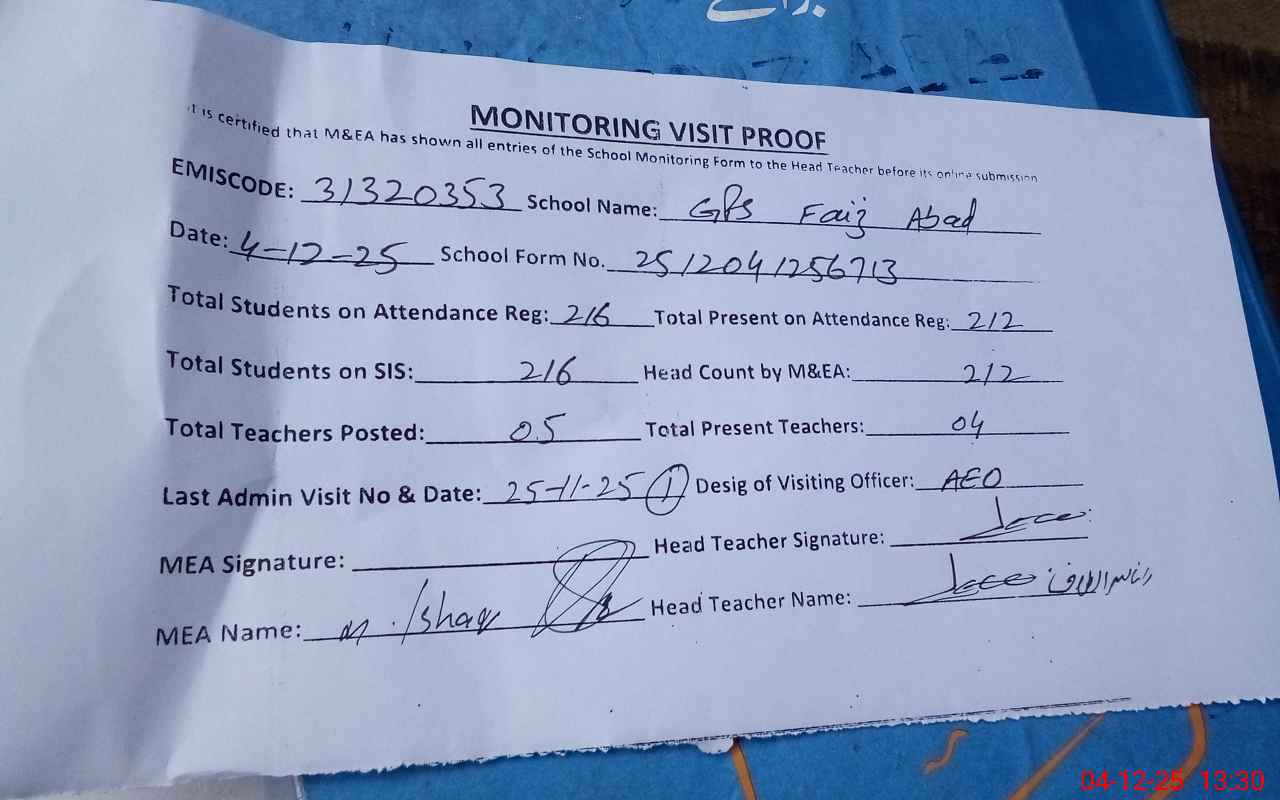 برائے
MONITORING VISIT PROOF
It is certified that M&EA has shown all entries of the School Monitoring Form to the Head Teacher before its online submission
EMISCODE: 31320353 School Name: GPS Faiz Abad
Date: 4-12-25 School Form No. 2512041256713
Total Students on Attendance Reg: 216 Total Present on Attendance Reg: 212
Total Students on SIS: 216 Head Count by M&EA: 212
Total Teachers Posted: 05 Total Present Teachers: 04
Last Admin Visit No & Date: 25-11-25 (1) Desig of Visiting Officer: AEO
MEA Signature: Head Teacher Signature:
MEA Name: M. Ishaq Head Teacher Name:
04-12-25 13:30